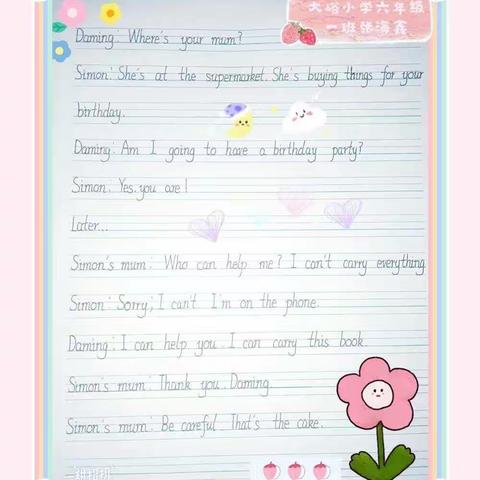 大峪小学六年级
一班张海鑫
Daming: Where's your mum?
Simon: She's at the supermarket. She's buying things for your
birthday.
Daming: Am I going to have a birthday party?
Simon: Yes. you are!
Later...
Simon's mum: Who can help me? I can't carry everything
Simon: Sorry, I can't I'm on the phone.
Daming: I can help you. I can carry this book.
Simon's mum: Thank you. Daming.
Simon's mum: Be careful That's the cake.